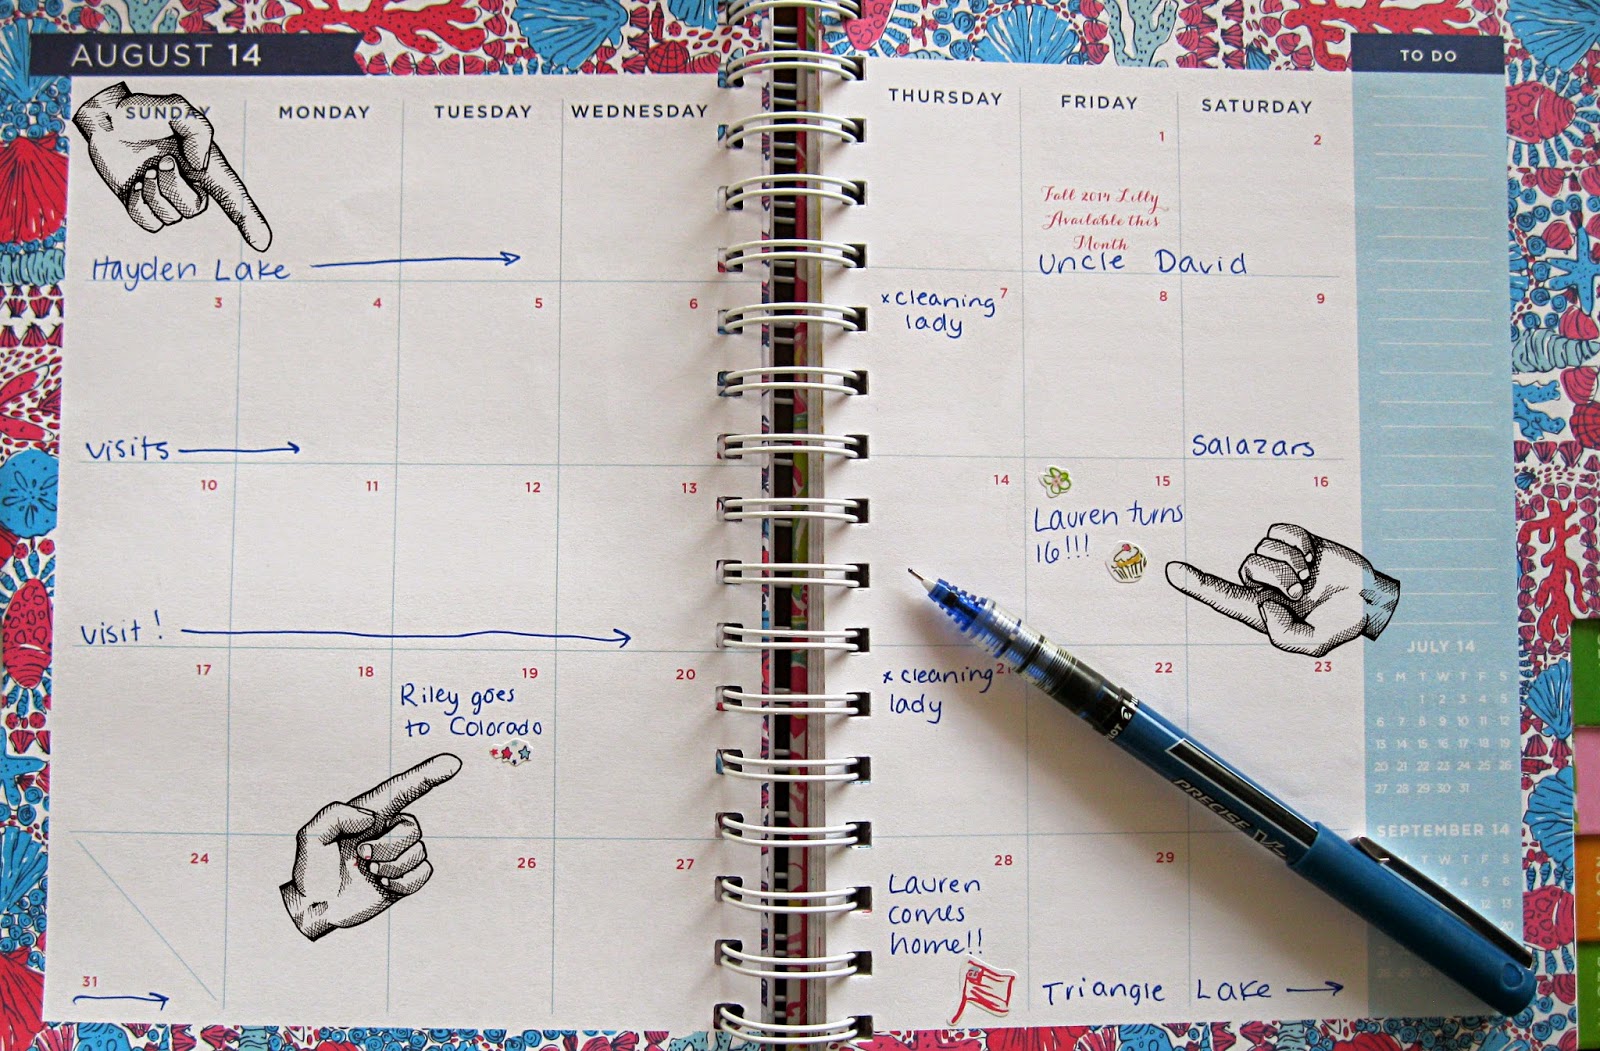 AUGUST 14
TO DO
SUNDAY MONDAY TUESDAY WEDNESDAY THURSDAY FRIDAY SATURDAY
1 2
Fall 2014 Lilly
Available this
Month
Hayden Lake
Uncle David
3 4 5 6 7 8 9
x cleaning
lady
visits
Salazars
10 11 12 13 14 15 16
Lauren turns
16!!!
visit!
17 18 19 20 21 22 23
Riley goes
to Colorado
x cleaning
lady
24 26 27 28 29
Lauren
comes
home!!
31
Triangle Lake
PILOT
PRECISE V5
JULY 14
S M T W T F S
1 2 3 4 5
6 7 8 9 10 11 12
13 14 15 16 17 18 19
20 21 22 23 24 25 26
27 28 29 30 31
SEPTEMBER 14
M T W T F S
4 5 6
12 13